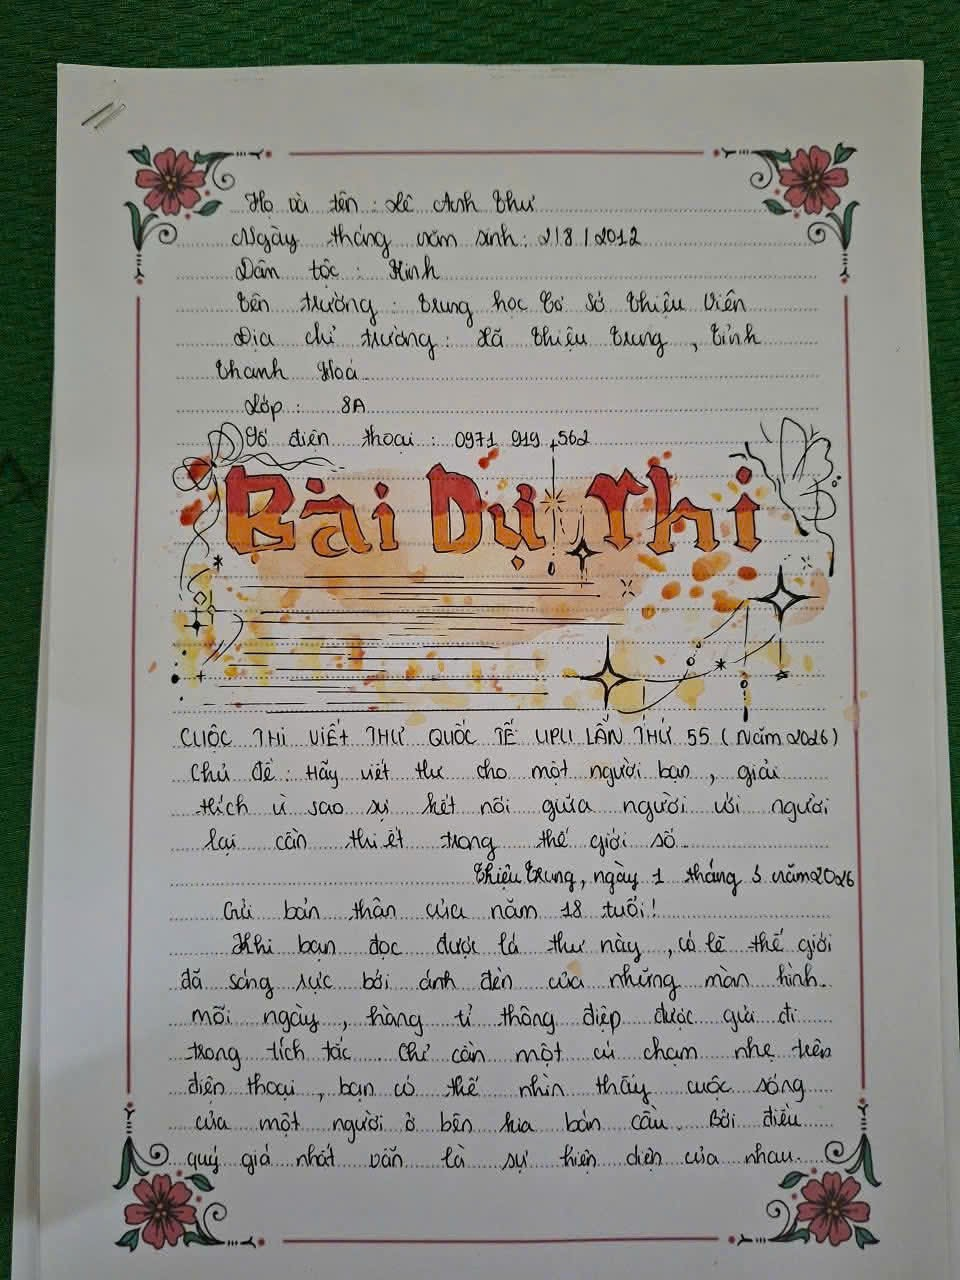 Họ và tên : Lê Anh Thư
Ngày tháng năm sinh : 2/8/2012
Dân tộc : Kinh
Tên trường : Trung học Cơ sở Thiệu Viên
Địa chỉ trường : Xã Thiệu Trung , Tỉnh
Thanh Hoá
Lớp : 8A
Số điện thoại : 0971 919 562
Bài Dự Thi
CUỘC THI VIẾT THƯ QUỐC TẾ UPU LẦN THỨ 55 ( Năm 2026)
Chủ đề : Hãy viết thư cho một người bạn , giải
thích vì sao sự kết nối giữa người với người
lại cần thiết trong thế giới số
Thiệu Trung, ngày 1 tháng 3 năm 2026
Gửi bản thân của năm 18 tuổi !
Khi bạn đọc được lá thư này , có lẽ thế giới
đã sáng rực bởi ánh đèn của những màn hình
mỗi ngày , hàng tỉ thông điệp được gửi đi
trong tích tắc . Chỉ cần một cú chạm nhẹ trên
điện thoại , bạn có thể nhìn thấy cuộc sống
của một người ở bên kia bán cầu . Bởi điều
quý giá nhất vẫn là sự hiện diện của nhau.